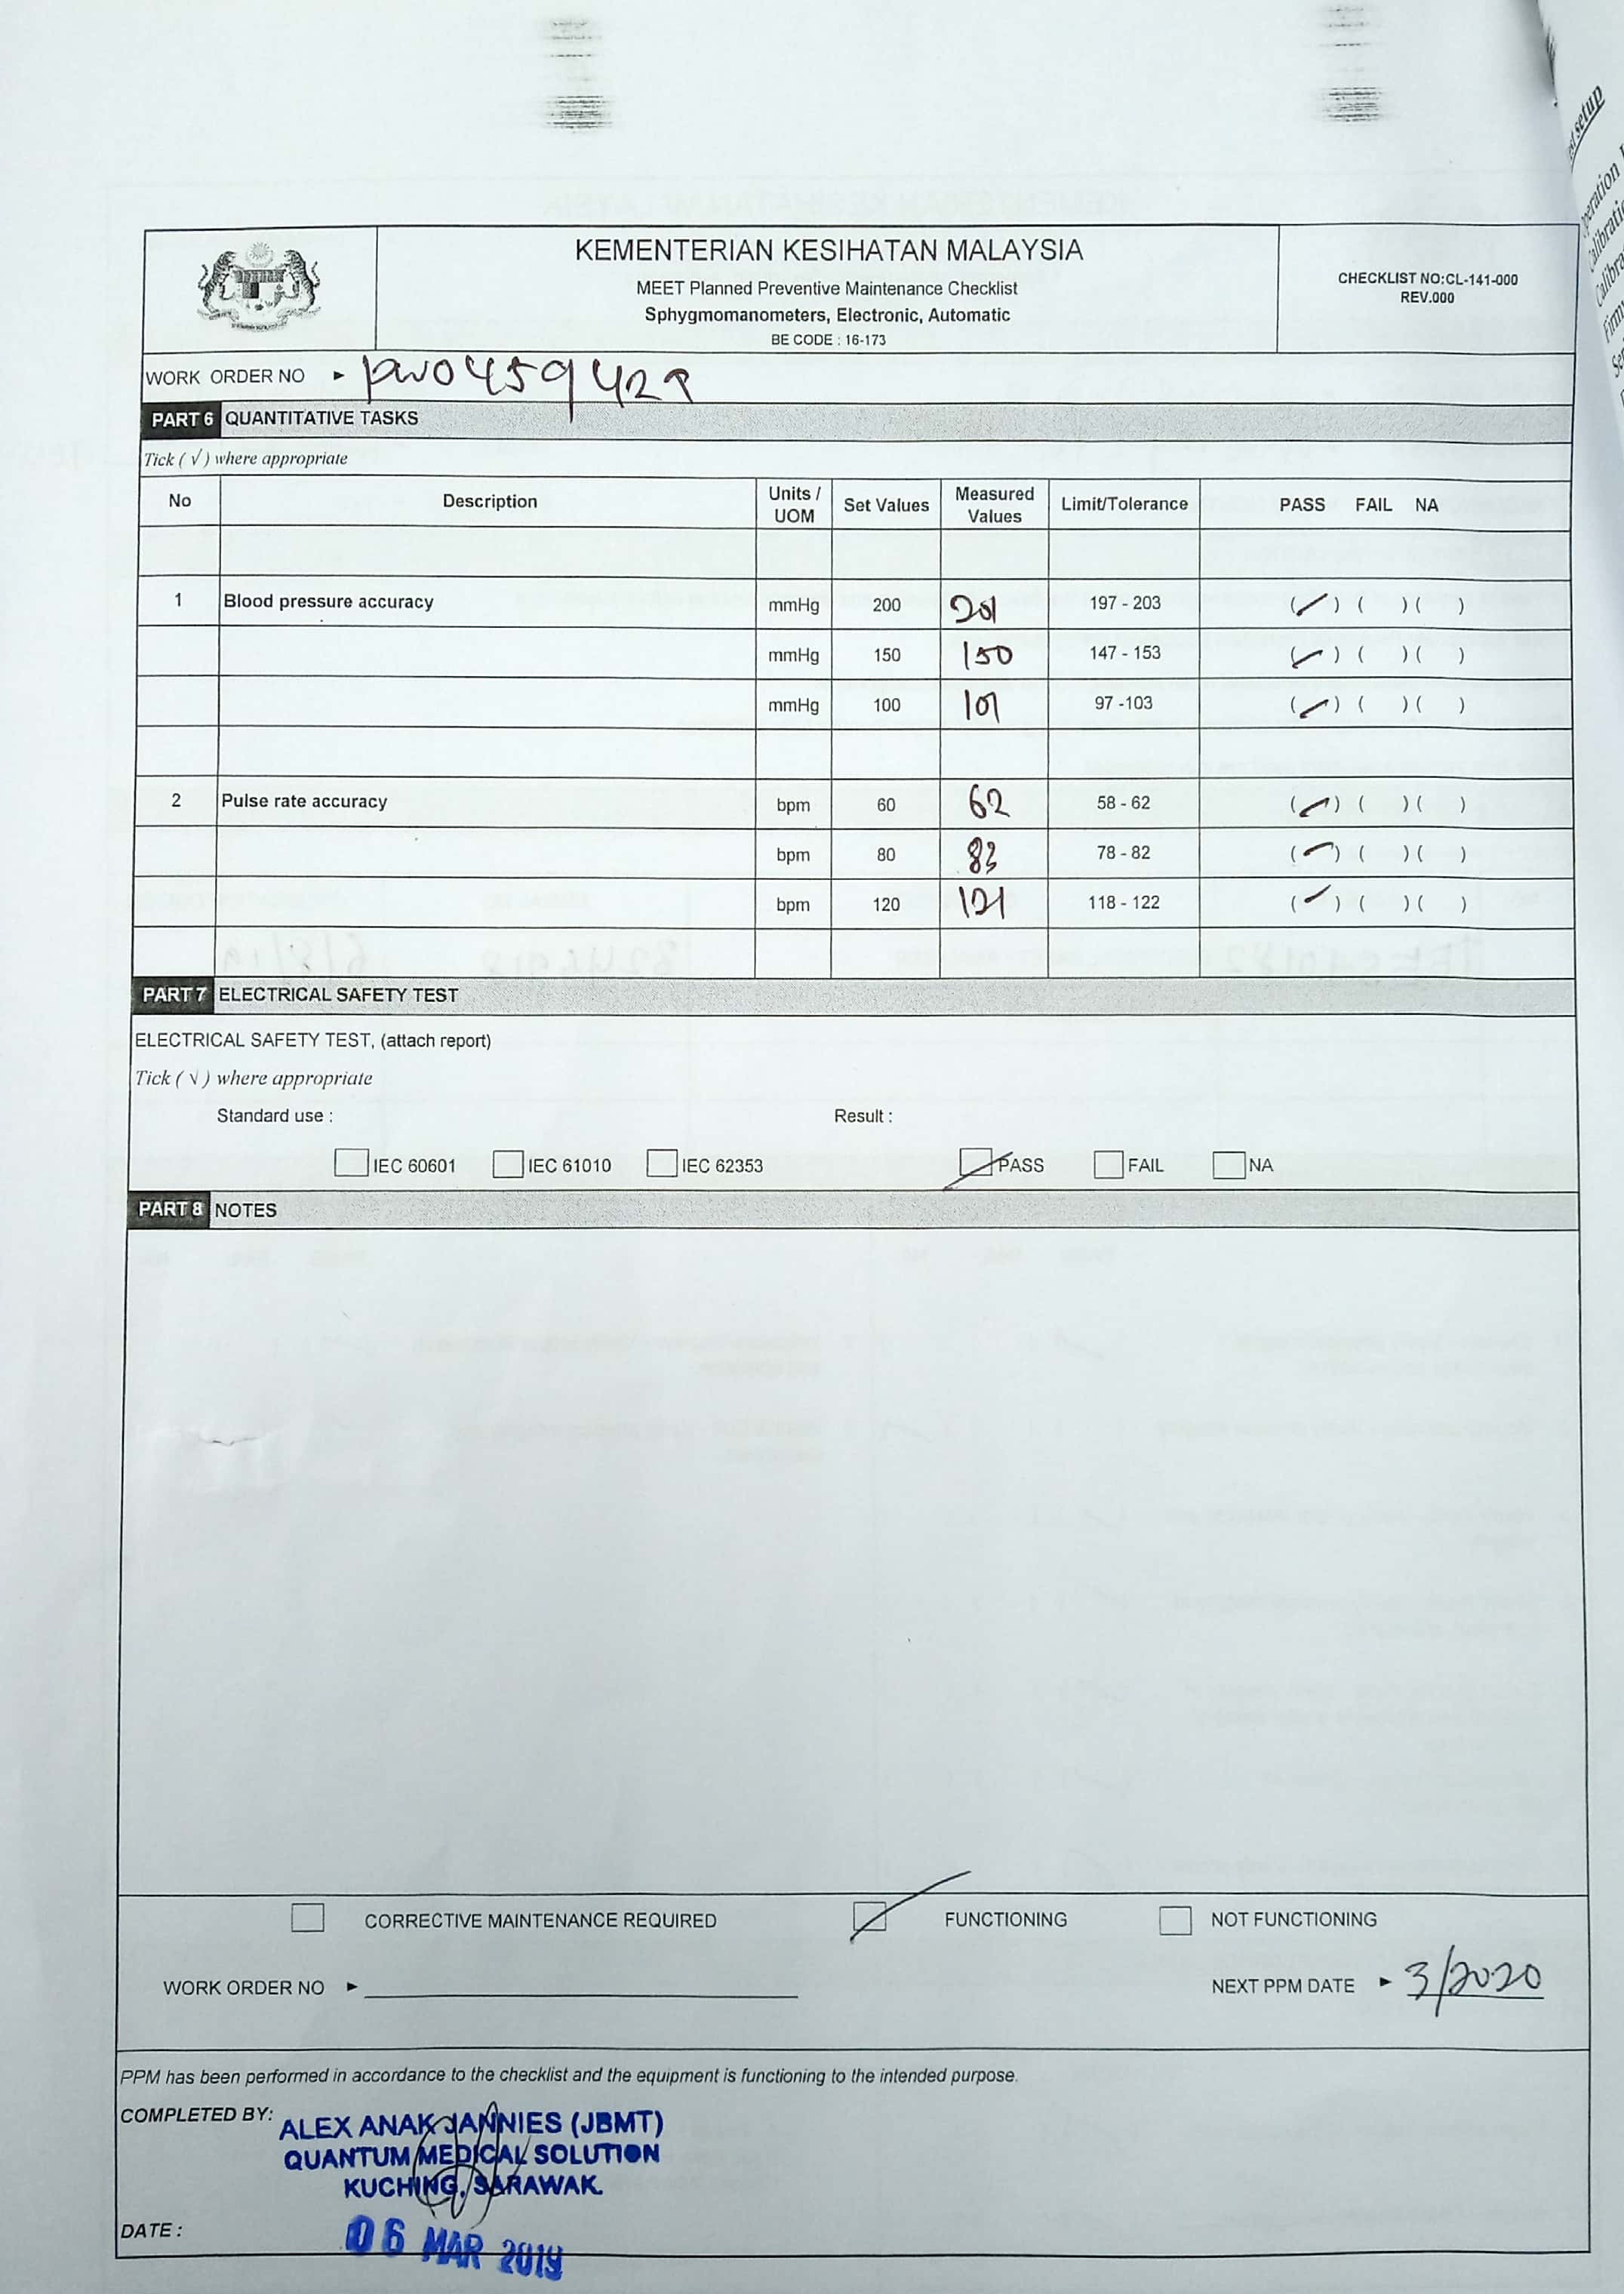 KEMENTERIAN KESIHATAN MALAYSIA
MEET Planned Preventive Maintenance Checklist
Sphygmomanometers, Electronic, Automatic
BE CODE : 16-173
CHECKLIST NO:CL-141-000
REV.000
WORK ORDER NO ► pwo459429
PART 6 QUANTITATIVE TASKS
Tick ( √ ) where appropriate
No Description Units / UOM Set Values Measured Values Limit/Tolerance PASS FAIL NA
1 Blood pressure accuracy mmHg 200 201 197 - 203 (✓) ( ) ( )
mmHg 150 150 147 - 153 (✓) ( ) ( )
mmHg 100 101 97 -103 (✓) ( ) ( )
2 Pulse rate accuracy bpm 60 62 58 - 62 (✓) ( ) ( )
bpm 80 83 78 - 82 (✓) ( ) ( )
bpm 120 121 118 - 122 (✓) ( ) ( )
PART 7 ELECTRICAL SAFETY TEST
ELECTRICAL SAFETY TEST, (attach report)
Tick ( √ ) where appropriate
Standard use : Result :
IEC 60601 IEC 61010 IEC 62353 PASS FAIL NA
PART 8 NOTES
CORRECTIVE MAINTENANCE REQUIRED FUNCTIONING NOT FUNCTIONING
WORK ORDER NO ► NEXT PPM DATE ► 3/2020
PPM has been performed in accordance to the checklist and the equipment is functioning to the intended purpose.
COMPLETED BY:
ALEX ANAK JANNIES (JBMT)
QUANTUM MEDICAL SOLUTION
KUCHING, SARAWAK.
DATE :
06 MAR 2019